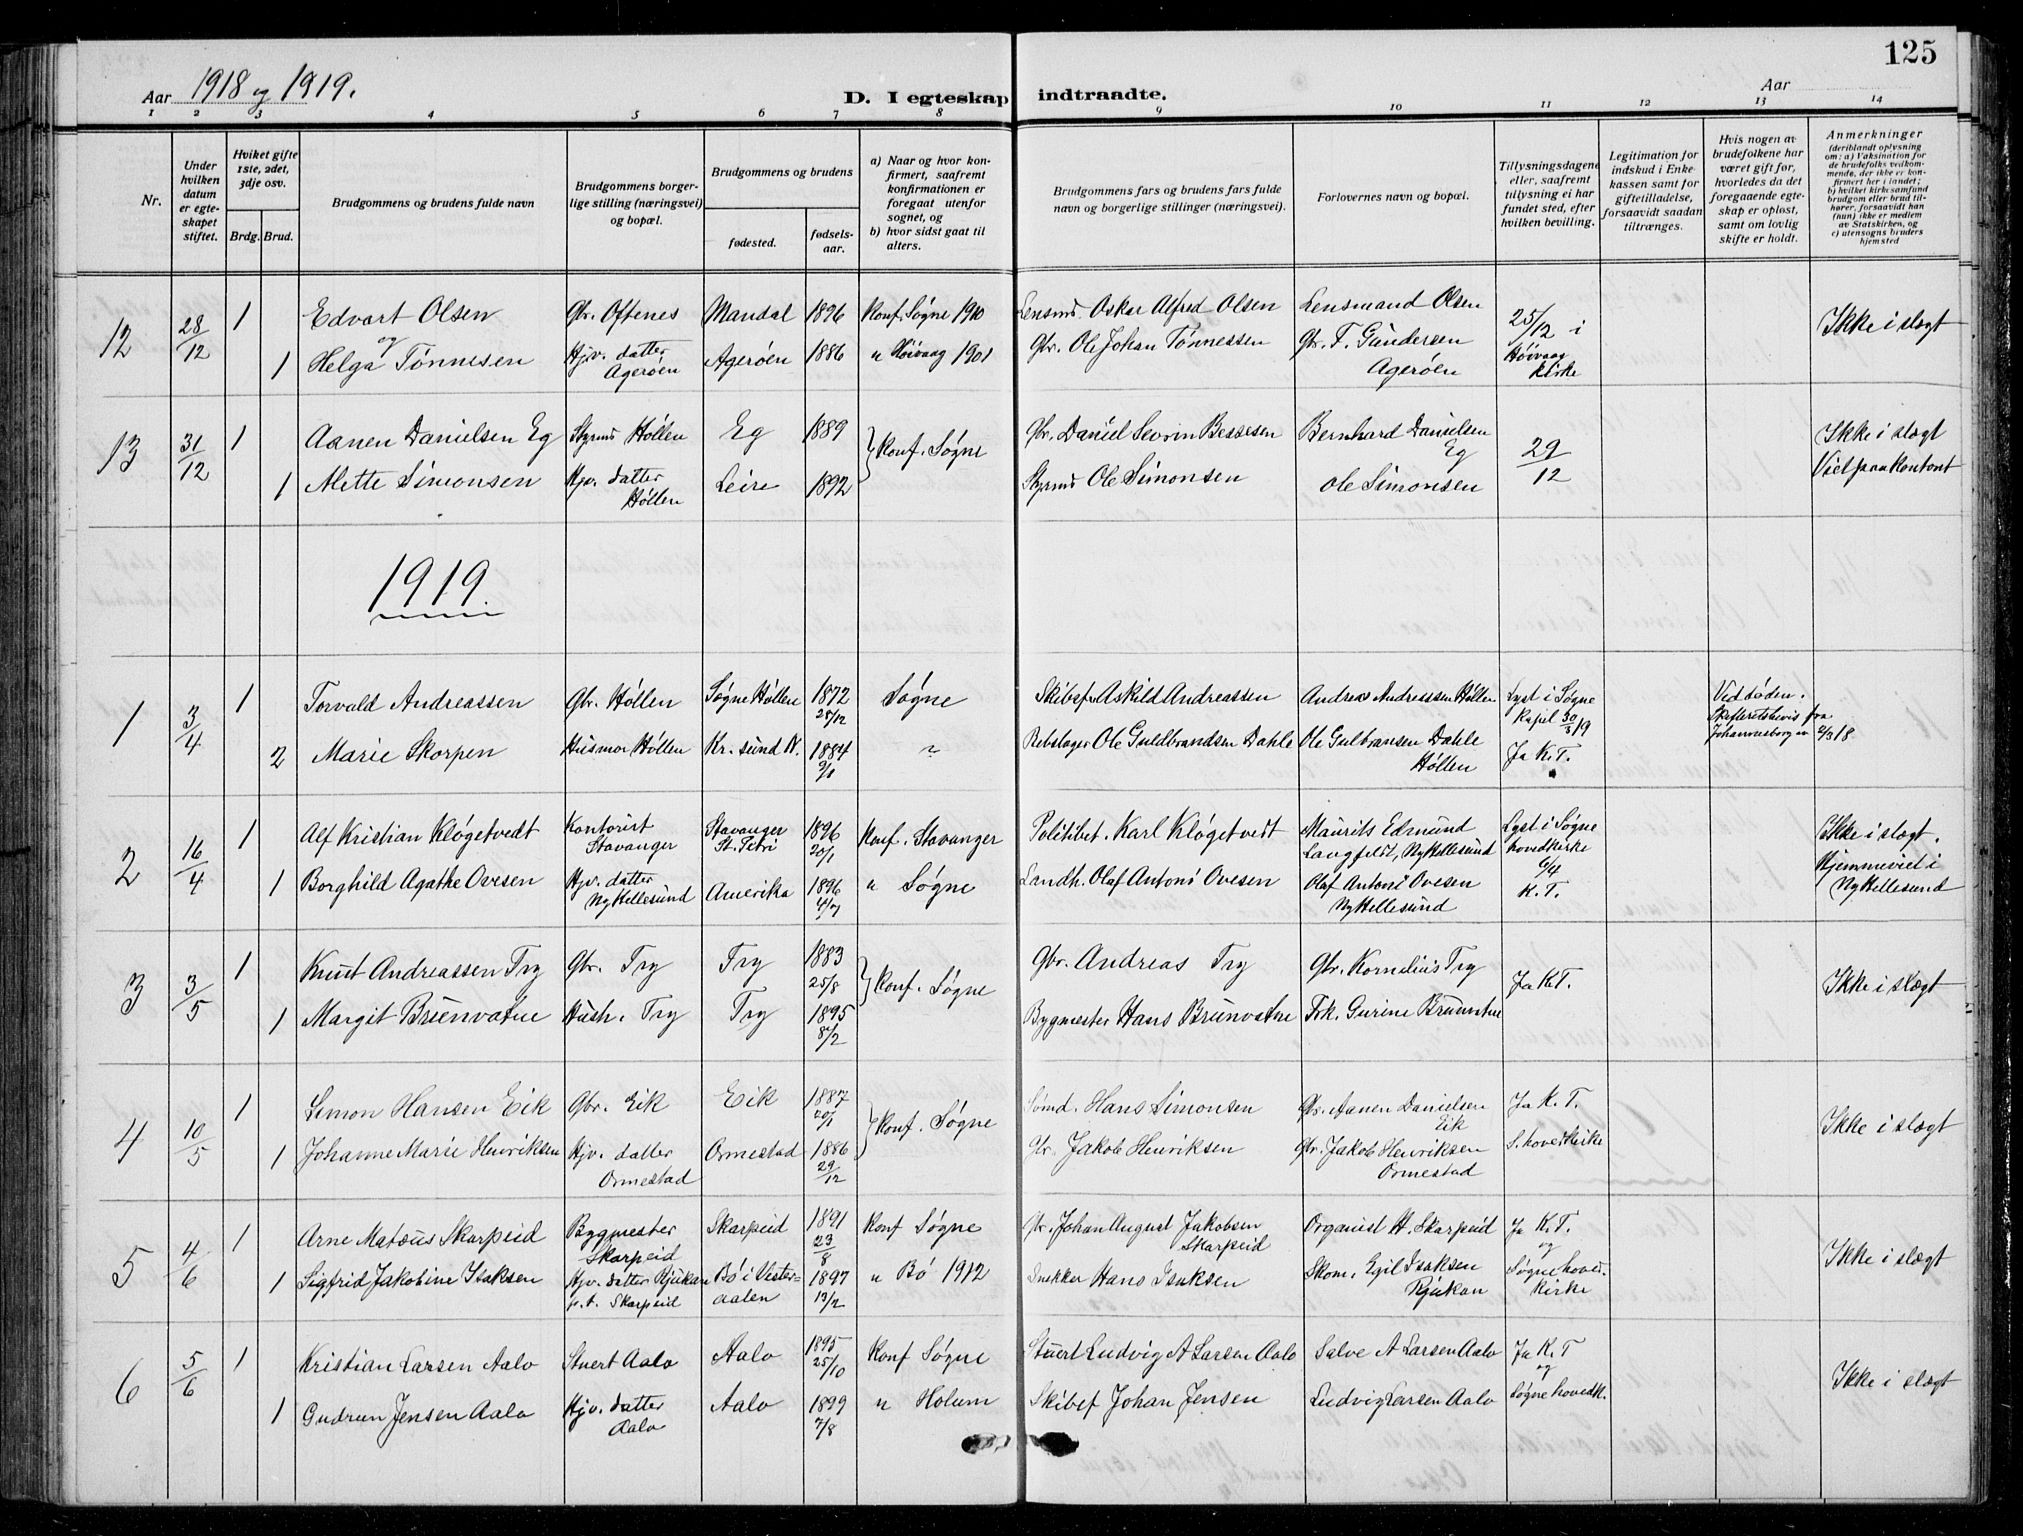 125
Aar 1918 og 1919.
D. I egteskap indtraadte.
Aar
1 2 3 4 5 6 7 8 9 10 11 12 13 14
Nr.
Under hvilken datum er egteskapet stiftet.
Hviket gifte 1ste, 2det, 3dje osv.
Brdg. Brud.
Brudgommens og brudens fulde navn
Brudgommens borgerlige stilling (næringsvei) og bopæl.
Brudgommens og brudens
fødested.
fødselsaar.
a) Naar og hvor konfirmert, saafremt konfirmationen er foregaat utenfor sognet, og
b) hvor sidst gaat til alters.
Brudgommens fars og brudens fars fulde navn og borgerlige stillinger (næringsvei).
Forlovernes navn og bopæl.
Tillysningsdagene eller, saafremt tillysning ei har fundet sted, efter hvilken bevilling.
Legitimation for indskud i Enkekassen samt for giftetilladelse, forsaavidt saadan tiltrænges.
Hvis nogen av brudefolkene har været gift før, hvorledes da det foregaaende egteskap er opløst, samt om lovlig skifte er holdt.
Anmerkninger
(deriblandt oplysning om: a) Vaksination for de brudefolks vedkommende, der ikke er konfirmert her i landet; b) hvilket kirkesamfund brudgom eller brud tilhører, forsaavidt han (hun) ikke er medlem av Statskirken, og c) utensogns bruders hjemsted
12 28/12 1 Edvart Olsen Gbr. Oftenes Mandal 1896 Konf. Søgne 1910 Lensmd. Oskar Alfred Olsen Lensmand Olsen 25/12 i Høivaag Kirke Ikke i slægt
og
1 Helga Tønnesen Hjv. datter Agerøen Agerøen 1886 " Høivaag 1901 Gbr. Ole Johan Tønnessen Gbr. T. Gundersen Agerøen
13 31/12 1 Aanen Danielsen Eg Styrmd Høllen Eg 1889 } Konf. Søgne Gbr. Daniel Sevrin Bessesen Bernhard Danielsen Eg 29/12 Ikke i slægt
1 Mette Simonsen Hjv. datter Høllen Leire 1892 Styrmd Ole Simonsen Ole Simonsen Viet paa Kontoret
1919
1 3/4 1 Torvald Andreassen Gbr. Høllen Søgne Høllen 1872 28/12 Søgne Skibsf. Askild Andreassen Andreas Andreassen Høllen Lyst i Søgne Kapel 30/3 19 Ved døden. Skifteretsbevis fra Johannesborg 2/3 18
2 Marie Skorpen Husmor Høllen Kr.sund N. 1884 9/1 " Rebslager Ole Guldbrandsen Dahle Ole Gulbransen Dahle Høllen Ja K.T.
2 16/4 1 Alf Kristian Kløgetvedt Kontorist Stavanger Stavanger St. Petri 1896 20/1 Konf. Stavanger Politibet. Karl Kløgetvedt Maurits Edmund Langfeldt, Ny Hellesund Lyst i Søgne hovedkirke 6/4 K.T. Ikke i slægt.
1 Borghild Agathe Ovesen Hjv. datter Ny Hellesund Amerika 1896 4/7 " Søgne Landh. Olaf Antoni Ovesen Olaf Antoni Ovesen Ny Hellesund Hjemmeviet i Ny Hellesund
3 3/5 1 Knut Andreassen Try Gbr. Try Try 1883 25/8 } Konf. Søgne Gbr. Andreas Try Gbr. Kornelius Try Ja K.T. Ikke i slægt
1 Margit Brunvatne Hush. Try Try 1895 8/2 Bygmester Hans Brunvatne Frk. Gurine Brunvatne
4 10/5 1 Simon Hansen Eik Gbr. Eik Eik 1887 20/1 } Konf. Søgne Sømd. Hans Simonsen Gbr. Aanen Danielsen Eik Ja K.T. Ikke i slægt
1 Johanne Marie Henriksen Hjv. datter Ormestad Ormestad 1886 29/12 Gbr. Jakob Henriksen Gbr. Jakob Henriksen Ormestad S. hovedkirke
5 4/6 1 Arne Matæus Skarpeid Bygmester Skarpeid Skarpeid 1891 23/8 Konf Søgne Gbr. Johan August Jakobsen Skarpeid Organist H. Skarpeid Ja K.T. og Ikke i slægt
1 Sigfrid Jakobine Isaksen Hjv. datter Rjukan p.t. Skarpeid Bö i Vesteraalen 1897 13/2 " Bö 1912 Snekker Hans Isaksen Skom. Egil Isaksen Rjukan Søgne hovedkirke
6 5/6 1 Kristian Larsen Aalo Stuert Aalo Aalo 1895 25/10 Konf Søgne Stuert Ludvig A Larsen Aalo Salve A Larsen Aalo Ja K.T og Ikke i slægt
1 Gudrun Jensen Aalo Hjv. datter Aalo Aalo 1899 7/8 " Holum Skibsf Johan Jensen Ludvig Larsen Aalo Søgne hovedk.